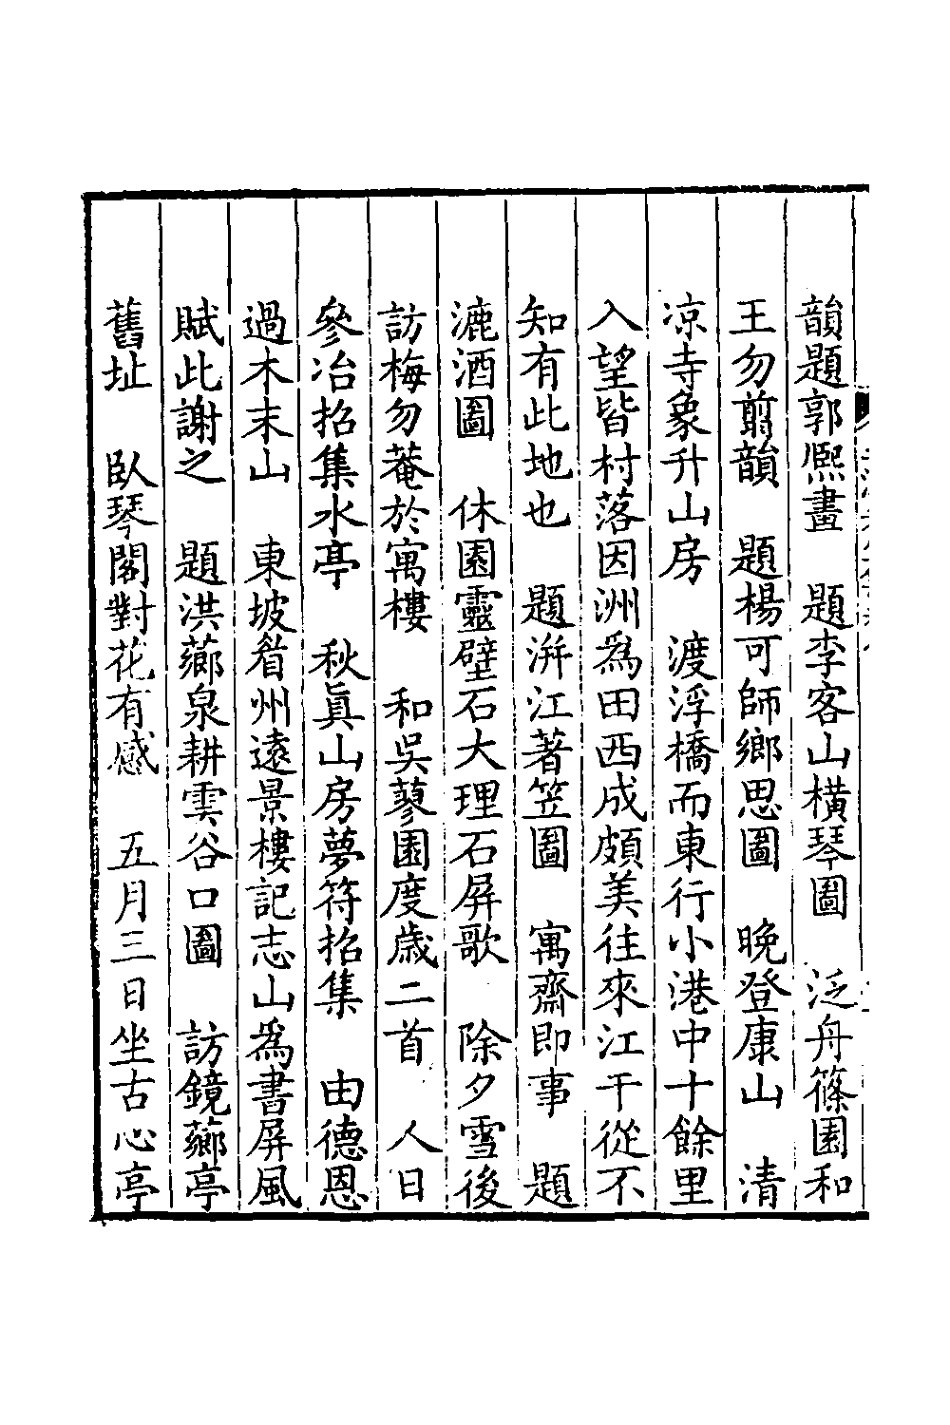 韻題郭熙畫　題李客山橫琴圖　泛舟篠園和
王勿翦韻　題楊可師鄉思圖　晚登康山　清
凉寺象升山房　渡浮橋而東行小港中十餘里
入望皆村落因洲爲田西成頗美往來江干從不
知有此地也　題洴江著笠圖　寓齋即事　題
漉酒圖　休園靈壁石大理石屏歌　除夕雪後
訪梅勿菴於寓樓　和吳蓼園度歲二首　人日
參冶招集水亭　秋眞山房夢符招集　由德恩
過木末山　東坡眉州遠景樓記志山爲書屏風
賦此謝之　題洪薌泉耕雲谷口圖　訪鏡薌亭
舊址　臥琴閣對花有感　五月三日坐古心亭